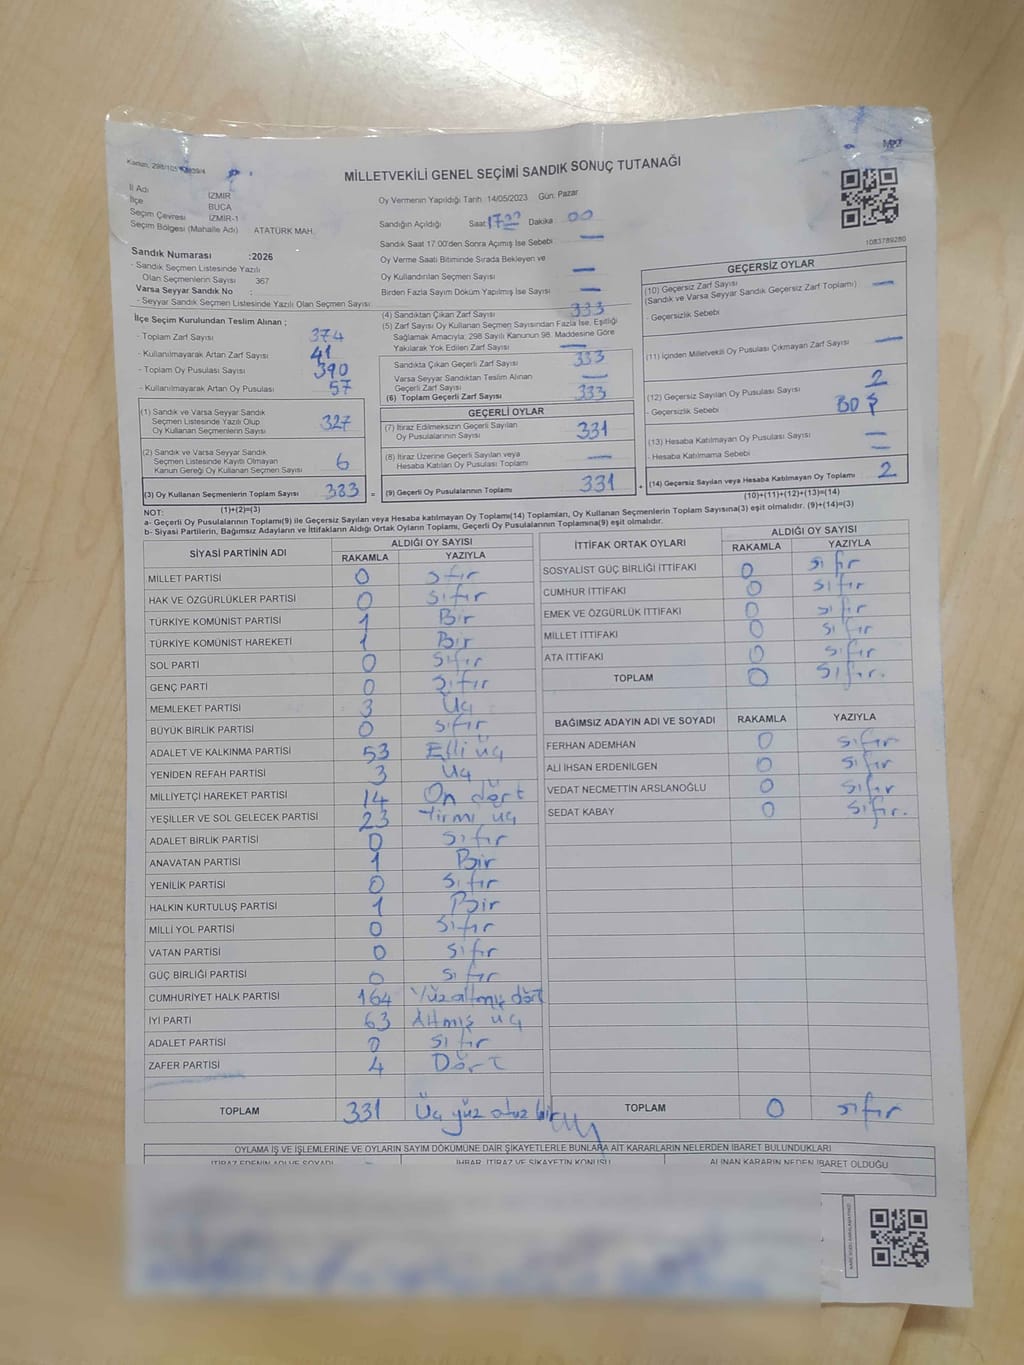 Kanun, 298/105
MİLLETVEKİLİ GENEL SEÇİMİ SANDIK SONUÇ TUTANAĞI
İl Adı İZMİR
İlçe BUCA
Seçim Çevresi İZMİR-1
Seçim Bölgesi (Mahalle Adı) ATATÜRK MAH.
Oy Vermenin Yapıldığı Tarih 14/05/2023 Gün: Pazar
Sandığın Açıldığı Saat 17 Dakika 00
Sandık Saat 17.00'den Sonra Açımış İse Sebebi —
Oy Verme Saati Bitiminde Sırada Bekleyen ve
Oy Kullandırılan Seçmen Sayısı —
Birden Fazla Sayım Döküm Yapılmış İse Sayısı —
1083789280
Sandık Numarası :2026
- Sandık Seçmen Listesinde Yazılı
Olan Seçmenlerin Sayısı 367
Varsa Seyyar Sandık No :
- Seyyar Sandık Seçmen Listesinde Yazılı Olan Seçmen Sayısı:
İlçe Seçim Kurulundan Teslim Alınan ;
- Toplam Zarf Sayısı 374
- Kullanılmayarak Artan Zarf Sayısı 41
- Toplam Oy Pusulası Sayısı 390
- Kullanılmayarak Artan Oy Pusulası 57
(1) Sandık ve Varsa Seyyar Sandık
Seçmen Listesinde Yazılı Olup
Oy Kullanan Seçmenlerin Sayısı 327
(2) Sandık ve Varsa Seyyar Sandık
Seçmen Listesinde Kayıtlı Olmayan
Kanun Gereği Oy Kullanan Seçmen Sayısı 6
(3) Oy Kullanan Seçmenlerin Toplam Sayısı 333 =
(1)+(2)=(3)
(4) Sandıktan Çıkan Zarf Sayısı 333
(5) Zarf Sayısı Oy Kullanan Seçmen Sayısından Fazla İse, Eşitliği
Sağlamak Amacıyla; 298 Sayılı Kanunun 98. Maddesine Göre
Yakılarak Yok Edilen Zarf Sayısı —
Sandıkta Çıkan Geçerli Zarf Sayısı 333
Varsa Seyyar Sandıktan Teslim Alınan
Geçerli Zarf Sayısı —
(6) Toplam Geçerli Zarf Sayısı 333
GEÇERLİ OYLAR
(7) İtiraz Edilmeksizin Geçerli Sayılan
Oy Pusulalarının Sayısı 331
(8) İtiraz Üzerine Geçerli Sayılan veya
Hesaba Katılan Oy Pusulası Toplamı —
(9) Geçerli Oy Pusulalarının Toplamı 331 +
GEÇERSİZ OYLAR
(10) Geçersiz Zarf Sayısı
(Sandık ve Varsa Seyyar Sandık Geçersiz Zarf Toplamı) —
- Geçersizlik Sebebi
(11) İçinden Milletvekili Oy Pusulası Çıkmayan Zarf Sayısı —
(12) Geçersiz Sayılan Oy Pusulası Sayısı 2
- Geçersizlik Sebebi BOŞ
(13) Hesaba Katılmayan Oy Pusulası Sayısı —
- Hesaba Katılmama Sebebi —
(14) Geçersiz Sayılan veya Hesaba Katılmayan Oy Toplamı 2
(10)+(11)+(12)+(13)=(14)
NOT:
a- Geçerli Oy Pusulalarının Toplamı(9) ile Geçersiz Sayılan veya Hesaba katılmayan Oy Toplamı(14) Toplamları, Oy Kullanan Seçmenlerin Toplam Sayısına(3) eşit olmalıdır. (9)+(14)=(3)
b- Siyasi Partilerin, Bağımsız Adayların ve İttifakların Aldığı Ortak Oyların Toplamı, Geçerli Oy Pusulalarının Toplamına(9) eşit olmalıdır.
SİYASİ PARTİNİN ADI ALDIĞI OY SAYISI
RAKAMLA YAZIYLA
MİLLET PARTİSİ 0 sıfır
HAK VE ÖZGÜRLÜKLER PARTİSİ 0 sıfır
TÜRKİYE KOMÜNİST PARTİSİ 1 Bir
TÜRKİYE KOMÜNİST HAREKETİ 1 Bir
SOL PARTİ 0 sıfır
GENÇ PARTİ 0 sıfır
MEMLEKET PARTİSİ 3 Üç
BÜYÜK BİRLİK PARTİSİ 0 sıfır
ADALET VE KALKINMA PARTİSİ 53 Elli üç
YENİDEN REFAH PARTİSİ 3 Üç
MİLLİYETÇİ HAREKET PARTİSİ 14 On dört
YEŞİLLER VE SOL GELECEK PARTİSİ 23 Yirmi üç
ADALET BİRLİK PARTİSİ 0 sıfır
ANAVATAN PARTİSİ 1 Bir
YENİLİK PARTİSİ 0 sıfır
HALKIN KURTULUŞ PARTİSİ 1 Bir
MİLLİ YOL PARTİSİ 0 sıfır
VATAN PARTİSİ 0 sıfır
GÜÇ BİRLİĞİ PARTİSİ 0 sıfır
CUMHURİYET HALK PARTİSİ 164 Yüz altmış dört
İYİ PARTİ 63 Altmış üç
ADALET PARTİSİ 0 sıfır
ZAFER PARTİSİ 4 Dört
TOPLAM 331 Üç yüz otuz bir
İTTİFAK ORTAK OYLARI ALDIĞI OY SAYISI
RAKAMLA YAZIYLA
SOSYALİST GÜÇ BİRLİĞİ İTTİFAKI 0 sıfır
CUMHUR İTTİFAKI 0 sıfır
EMEK VE ÖZGÜRLÜK İTTİFAKI 0 sıfır
MİLLET İTTİFAKI 0 sıfır
ATA İTTİFAKI 0 sıfır
TOPLAM 0 sıfır.
BAĞIMSIZ ADAYIN ADI VE SOYADI RAKAMLA YAZIYLA
FERHAN ADEMHAN 0 sıfır
ALİ İHSAN ERDENİLGEN 0 sıfır
VEDAT NECMETTİN ARSLANOĞLU 0 sıfır
SEDAT KABAY 0 sıfır.
TOPLAM 0 sıfır
OYLAMA İŞ VE İŞLEMLERİNE VE OYLARIN SAYIM DÖKÜMÜNE DAİR ŞİKAYETLERLE BUNLARA AİT KARARLARIN NELERDEN İBARET BULUNDUKLARI
İTİRAZ EDENİN ADI VE SOYADI İHBAR, İTİRAZ VE ŞİKAYETİN KONUSU ALINAN KARARIN NEDEN İBARET OLDUĞU